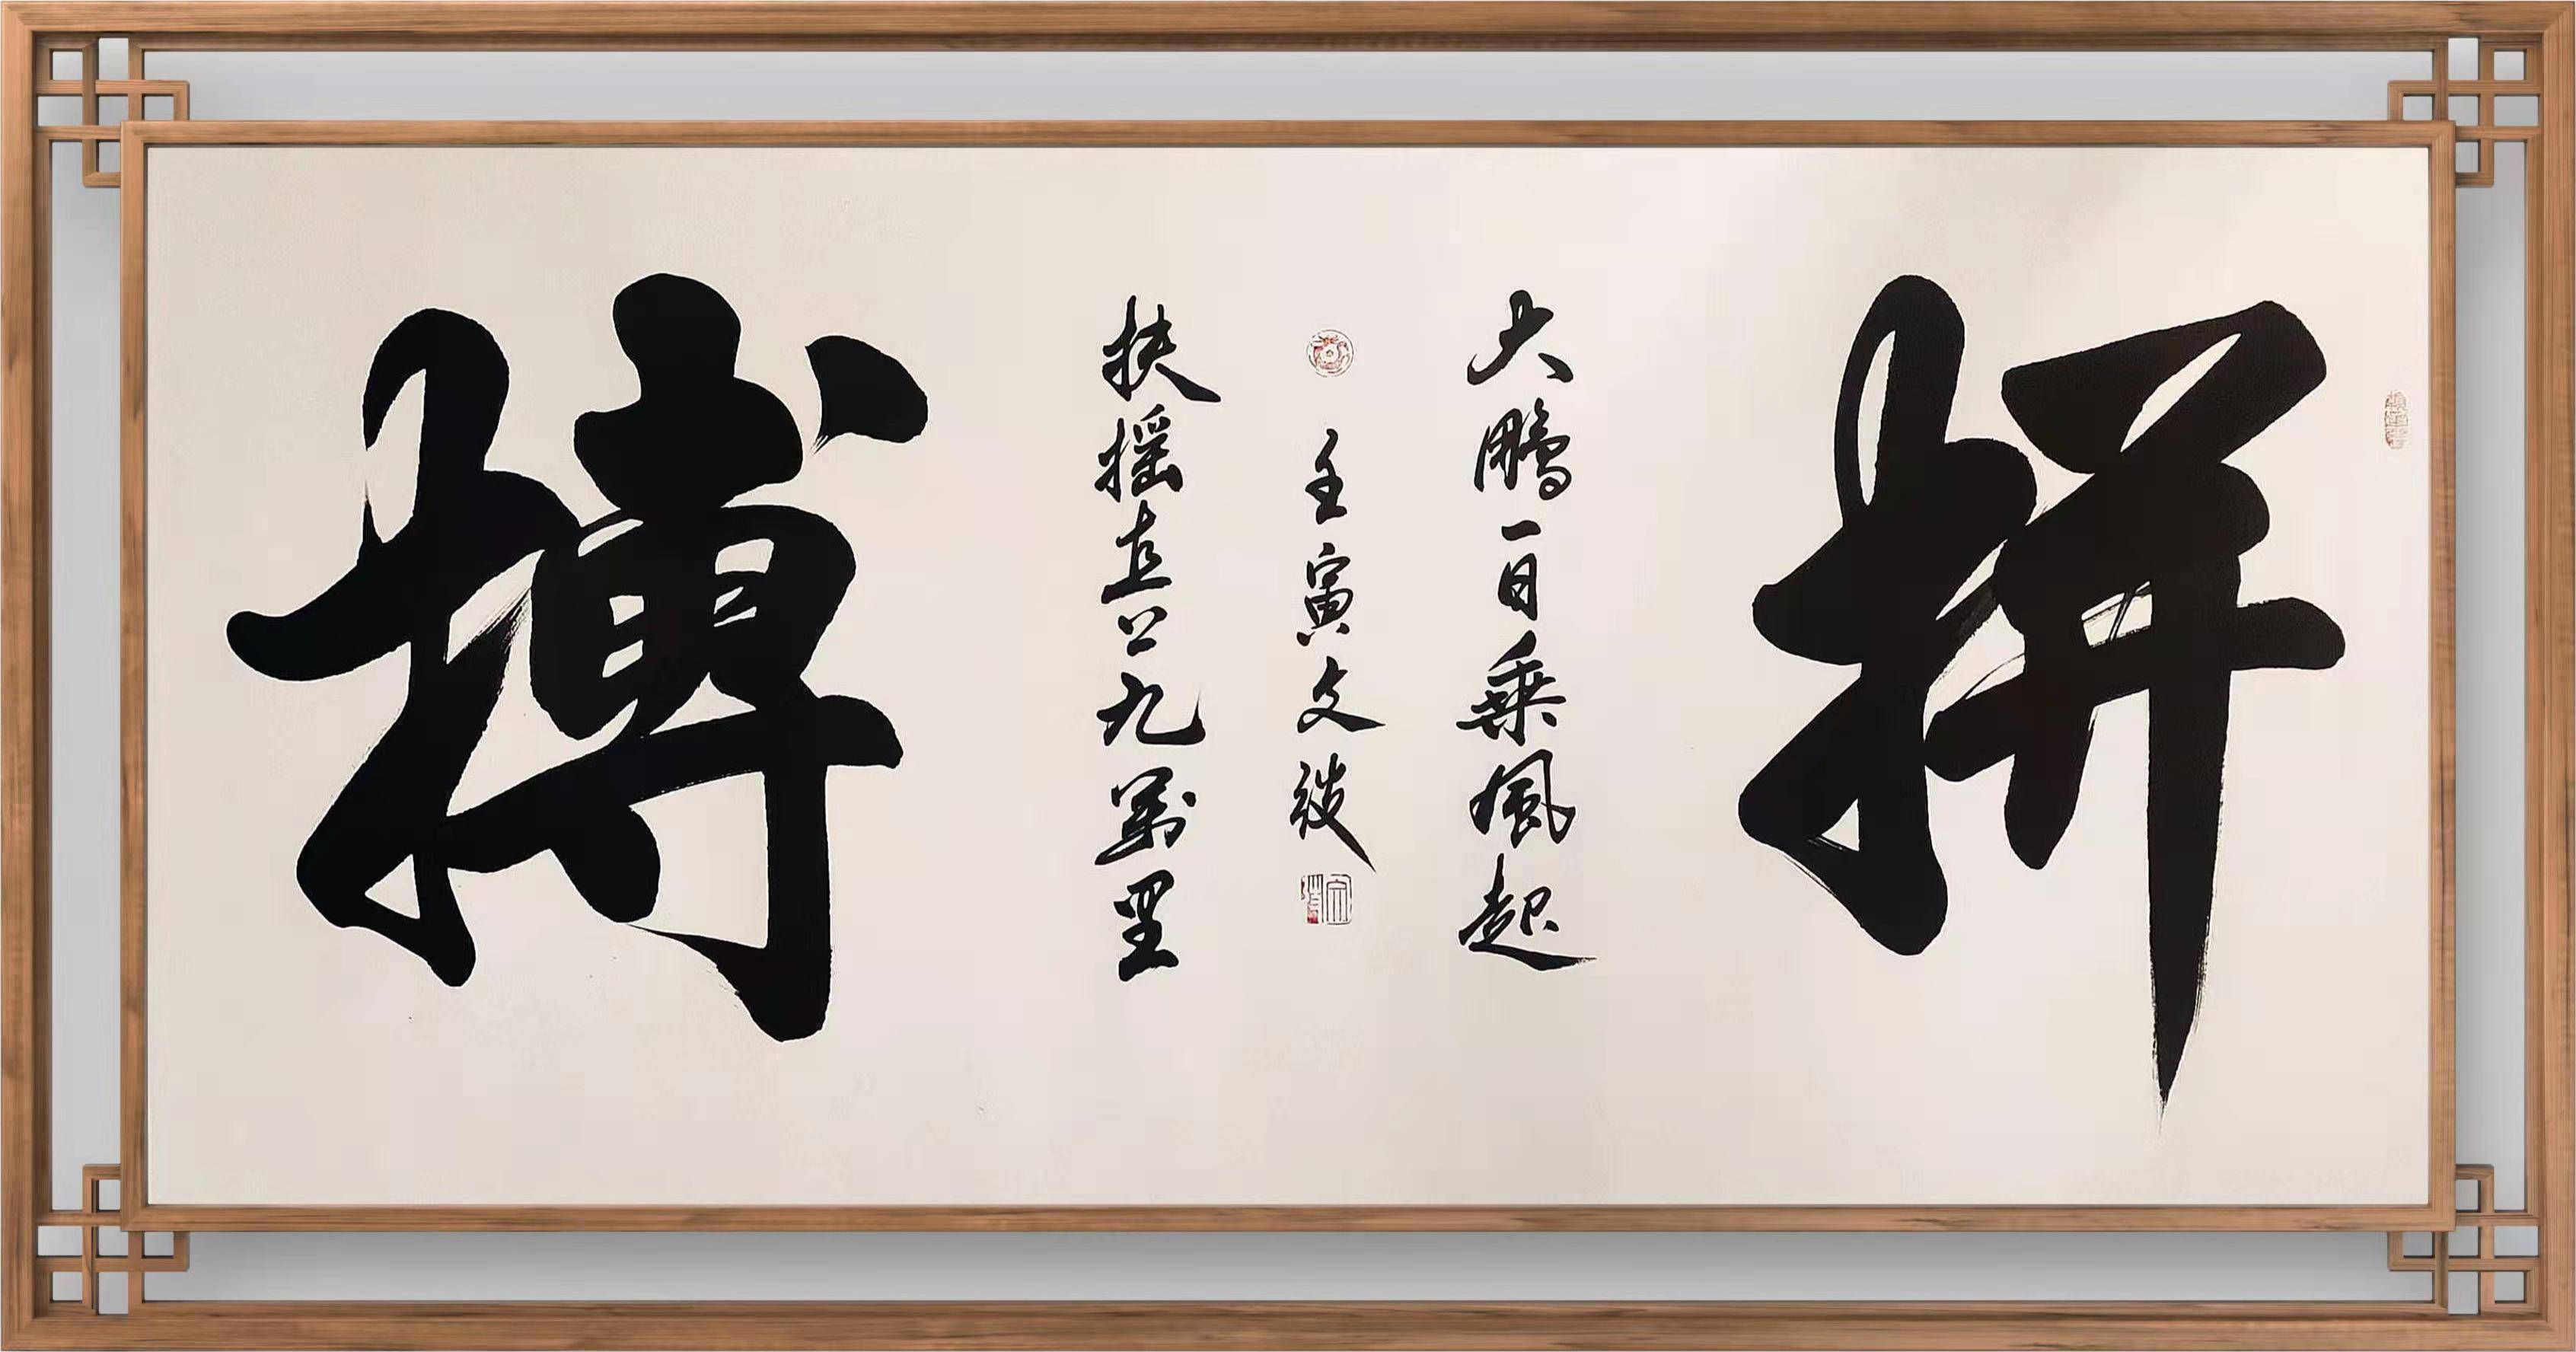 拼
大鵬一日乘風起
壬寅文
扶摇直上九萬里
搏